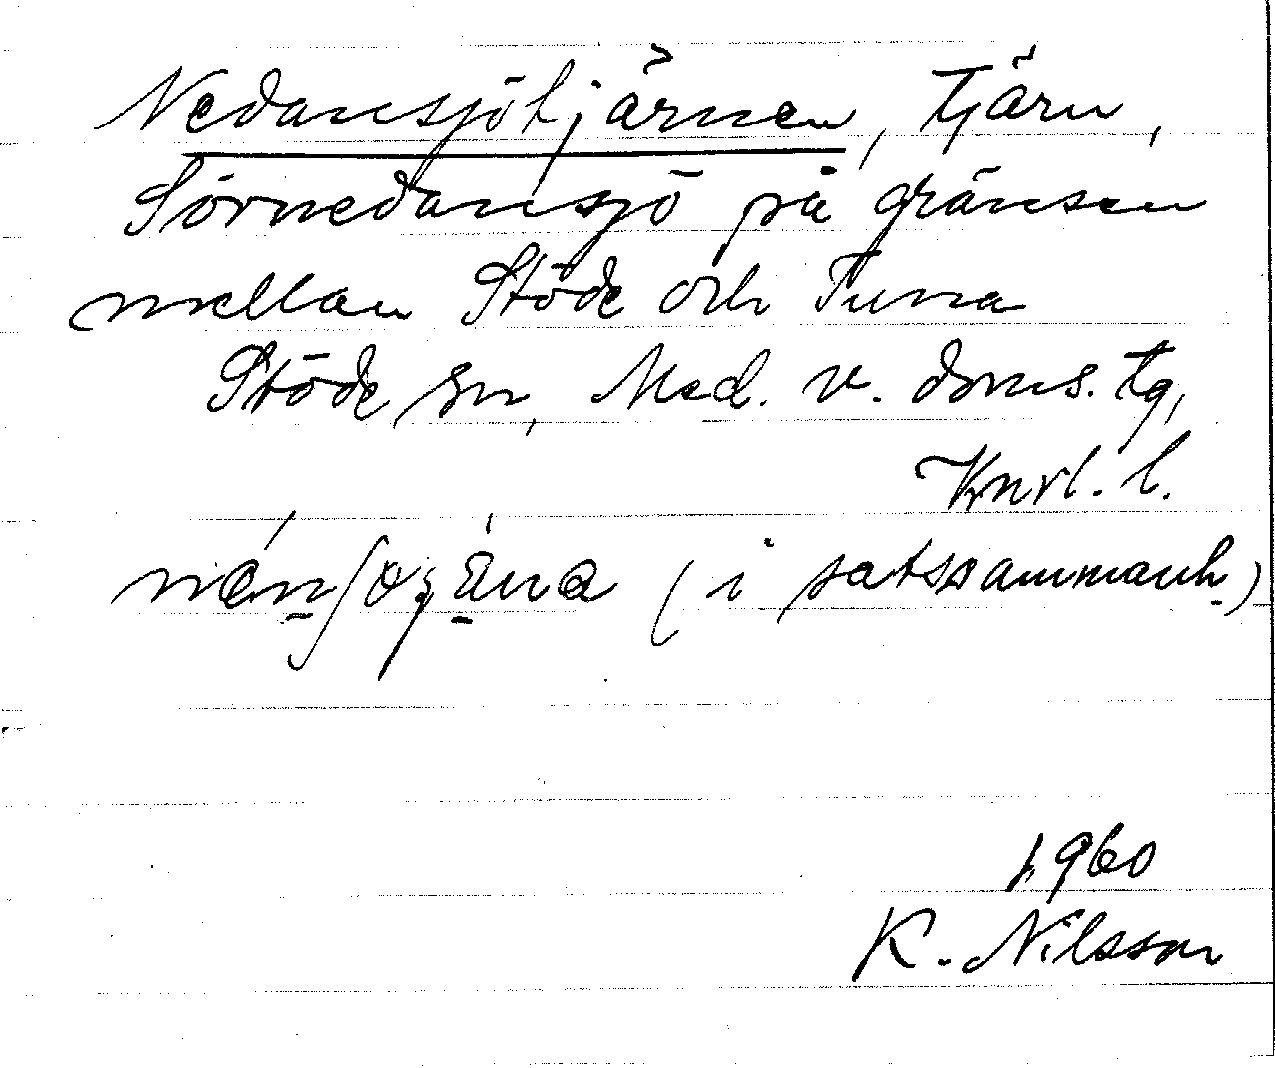 Nedansjötjärnen, Tjärn,
Sörnedansjö på gränsen
mellan Stöde och Tuna
Stöde sn, Med. v. doms. tg,
Knrl. l.
(i satssammanh.)
1960
K. Nilsson